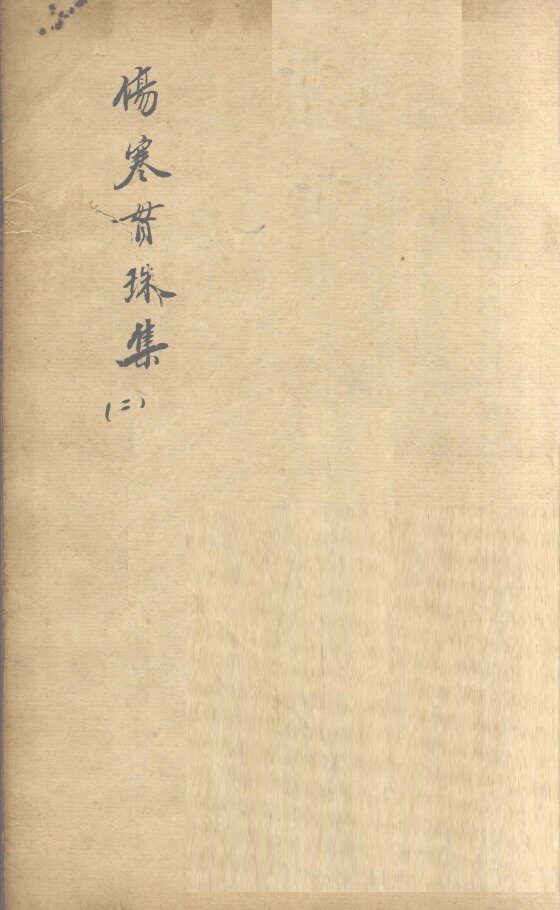 傷寒貫珠集
(二)